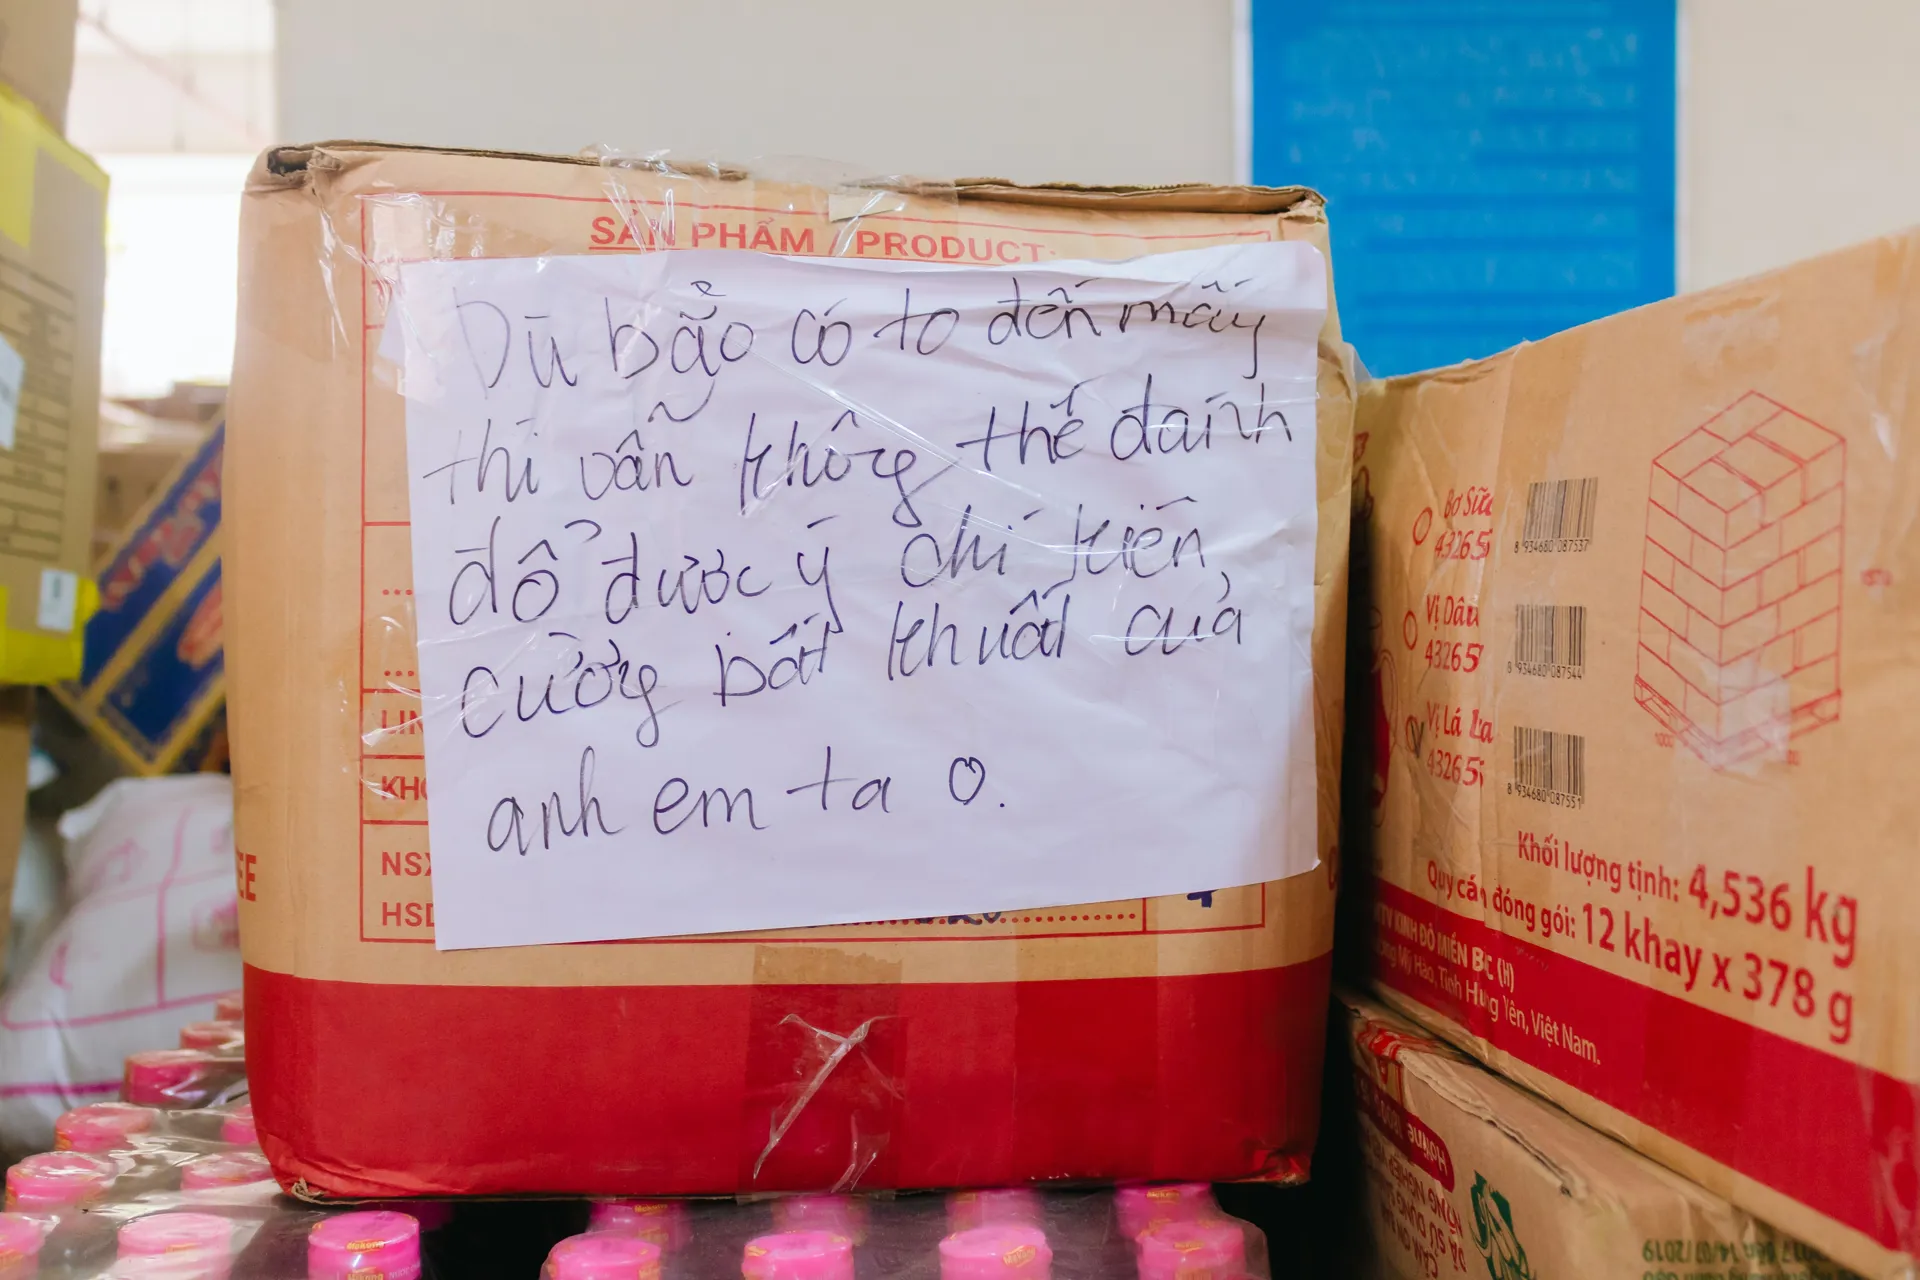 SẢN PHẨM / PRODUCT:
Dù bão có to đến mấy
thì vẫn không thể đánh
đổ được ý chí kiên
cường bất khuất của
anh em ta
LIN
KHO
NSX
HSD
EE
Bơ Sữa
43265
8 934680 087537
Vị Dâu
43265
8 934680 087544
Vị Lá
43265
8 934680 087551
Khối lượng tịnh: 4,536 kg
Quy cách đóng gói: 12 khay x 378 g
KINH ĐÔ MIỀN BẮC (H)
Mỹ Hào, Tỉnh Hưng Yên, Việt Nam.
Hotline 1800
14/07/2019